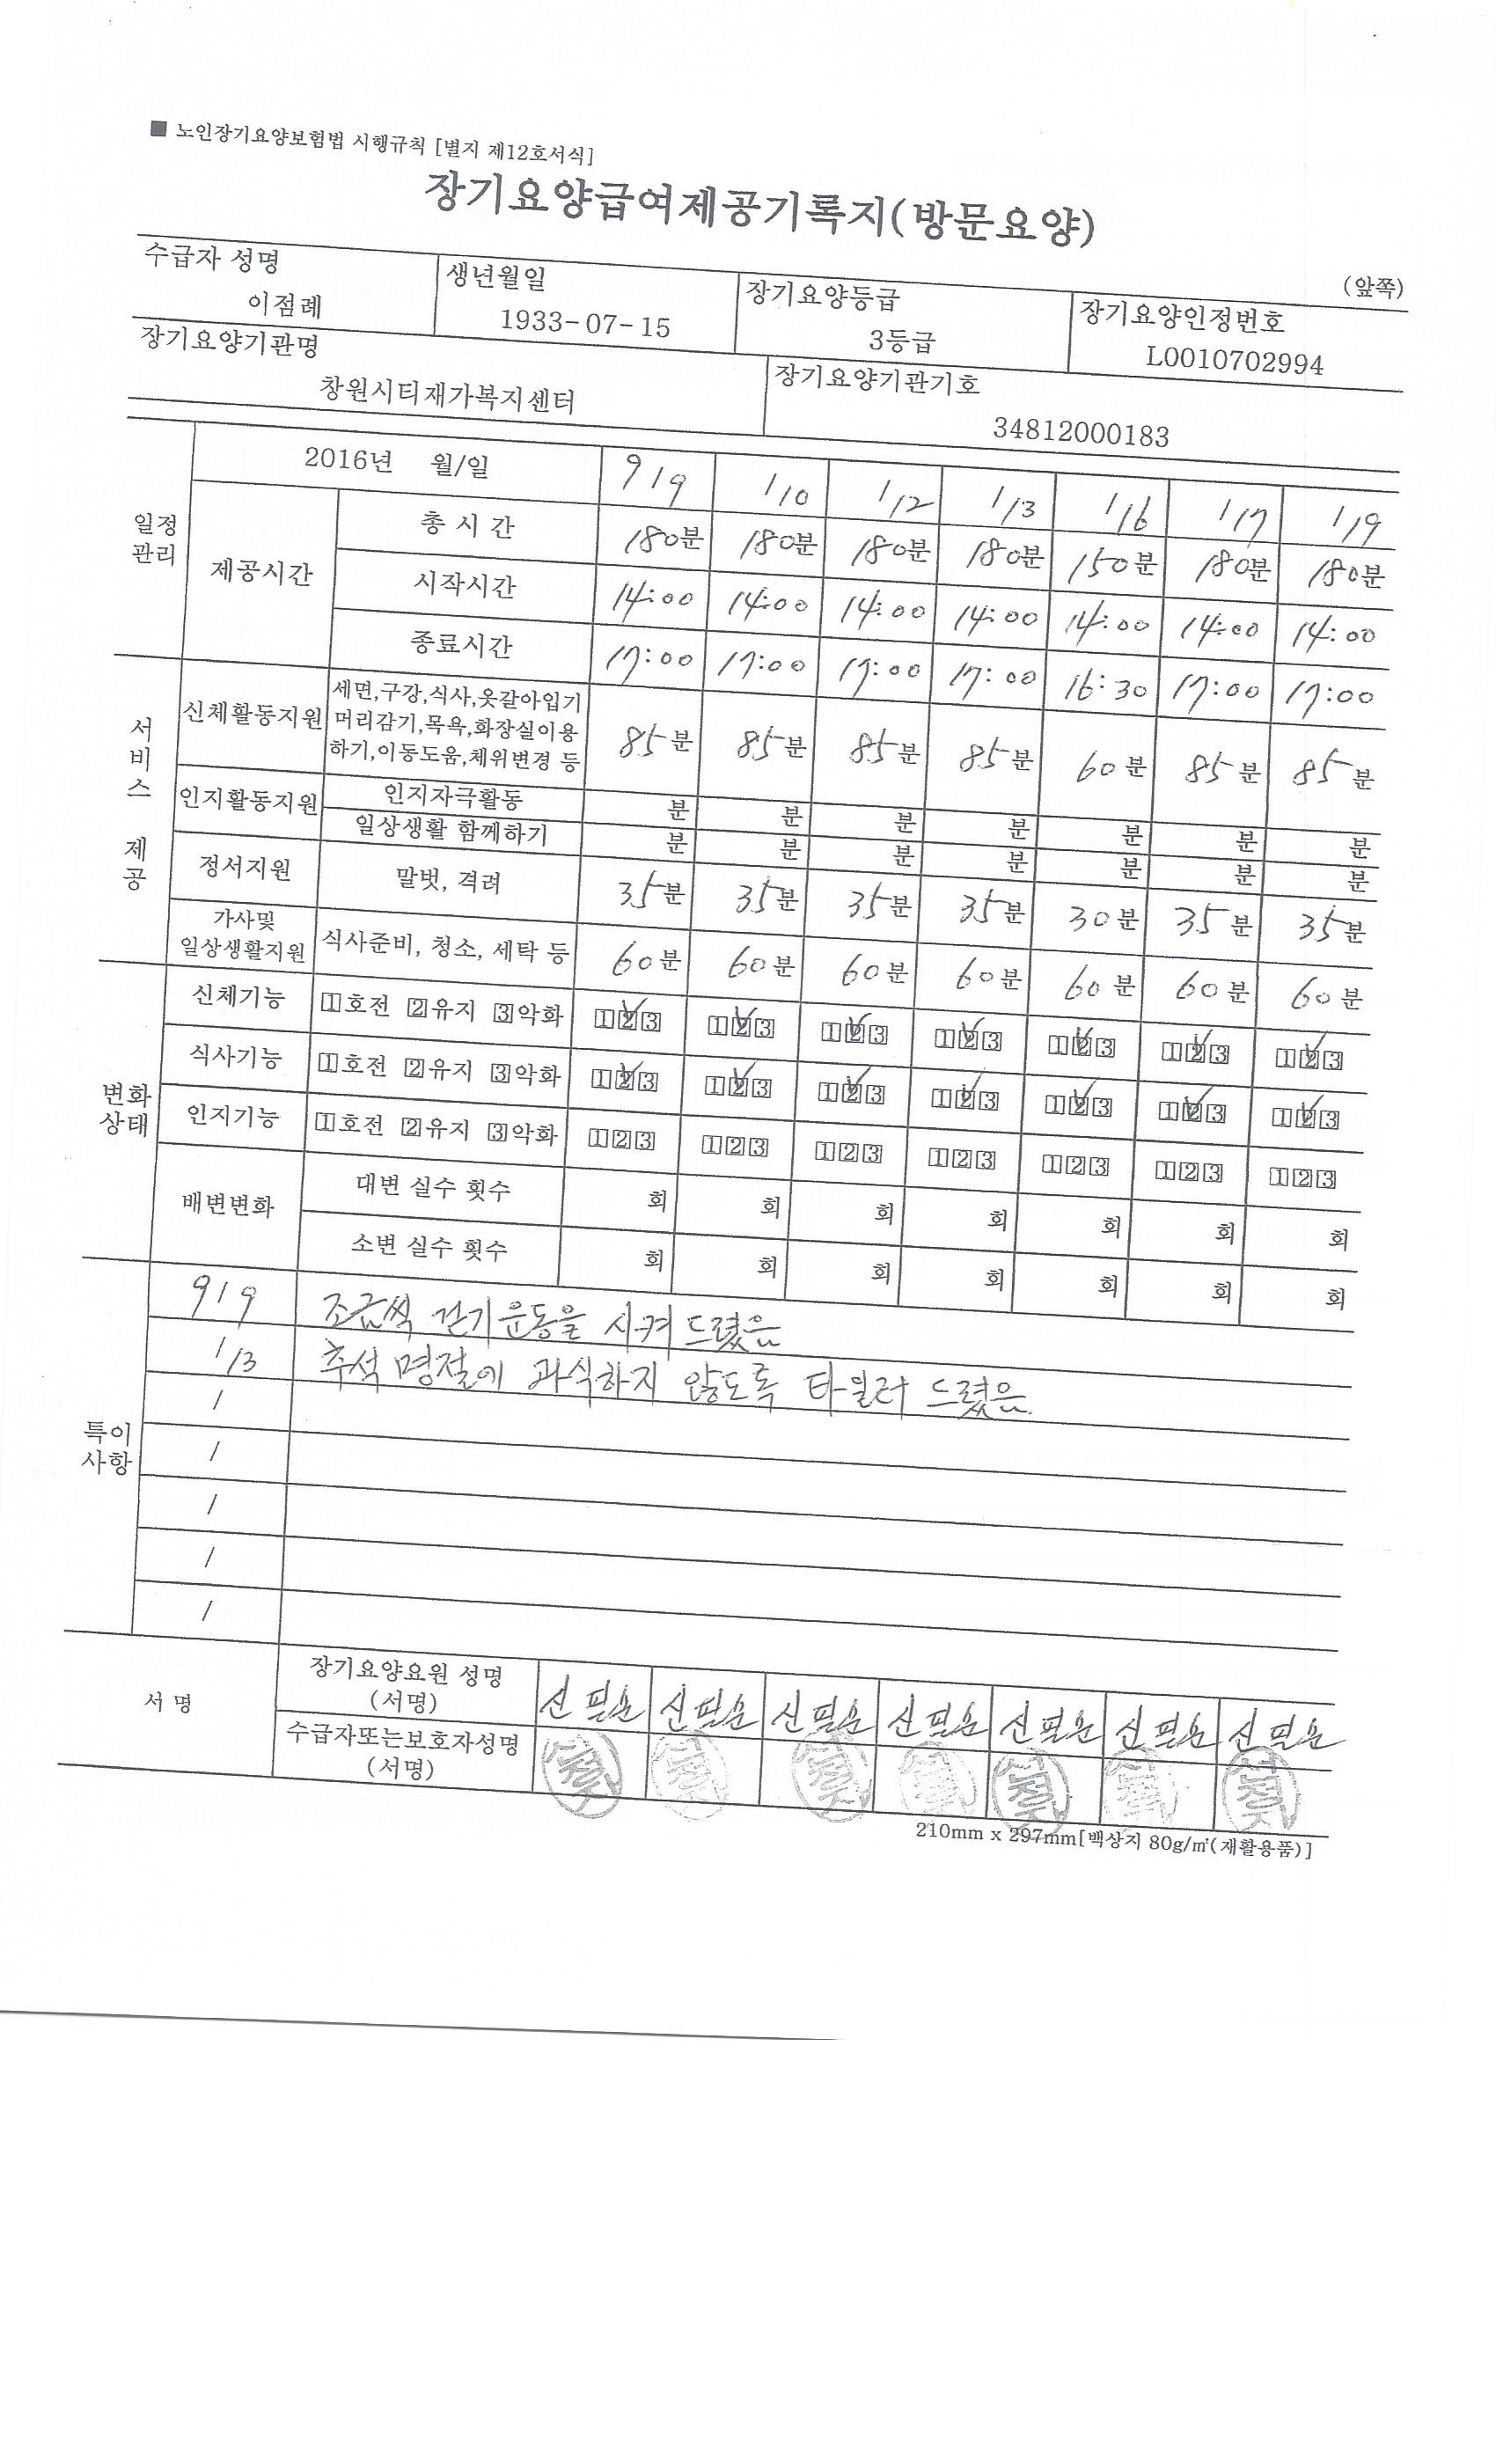 ■ 노인장기요양보험법 시행규칙 [별지 제12호서식]
장기요양급여제공기록지(방문요양)
(앞쪽)
수급자 성명 생년월일 장기요양등급 장기요양인정번호
이점례 1933-07-15 3등급 L0010702994
장기요양기관명 장기요양기관기호
창원시티재가복지센터 34812000183
일정관리 2016년 월/일 9/9 /10 /12 /13 /16 /17 /19
제공시간 총 시 간 180분 180분 180분 180분 150분 180분 180분
시작시간 14:00 14:00 14:00 14:00 14:00 14:00 14:00
종료시간 17:00 17:00 17:00 17:00 16:30 17:00 17:00
서비스 제공
신체활동지원 세면,구강,식사,옷갈아입기 머리감기,목욕,화장실이용 하기,이동도움,체위변경 등 85분 85분 85분 85분 60분 85분 85분
인지활동지원 인지자극활동 분 분 분 분 분 분 분
일상생활 함께하기 분 분 분 분 분 분 분
정서지원 말벗, 격려 35분 35분 35분 35분 30분 35분 35분
가사및 일상생활지원 식사준비, 청소, 세탁 등 60분 60분 60분 60분 60분 60분 60분
변화상태
신체기능 1호전 2유지 3악화 123 123 123 123 123 123 123
식사기능 1호전 2유지 3악화 123 123 123 123 123 123 123
인지기능 1호전 2유지 3악화 123 123 123 123 123 123 123
배변변화 대변 실수 횟수 회 회 회 회 회 회 회
소변 실수 횟수 회 회 회 회 회 회 회
특이사항
9/9 조금씩 걷기운동을 시켜 드렸음
/13 추석 명절에 과식하지 않도록 타일러 드렸음.
/
/
/
/
/
서 명
장기요양요원 성명 (서명) 신필순 신필순 신필순 신필순 신필순 신필순 신필순
수급자또는보호자성명 (서명)
210mm x 297mm[백상지 80g/㎡(재활용품)]